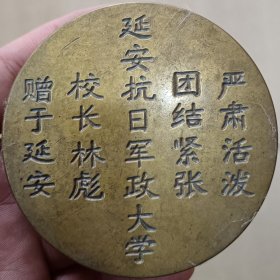 严肃活泼
团结紧张
延安抗日军政大学
校长林彪
赠于延安